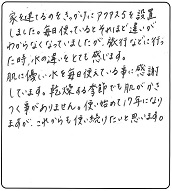 家を建てるのをきっかけにアクアス5を設置
しました。毎日使っているとそれほど違いが
わからなくなっていましたが、旅行などに行っ
た時、水の違いをとても感じます。
肌に優しい水を毎日使えている事に感謝
しています。乾燥する季節でも肌がかさ
つく事がありません。使い始めて17年になり
ますが、これからも使い続けたいと思います。